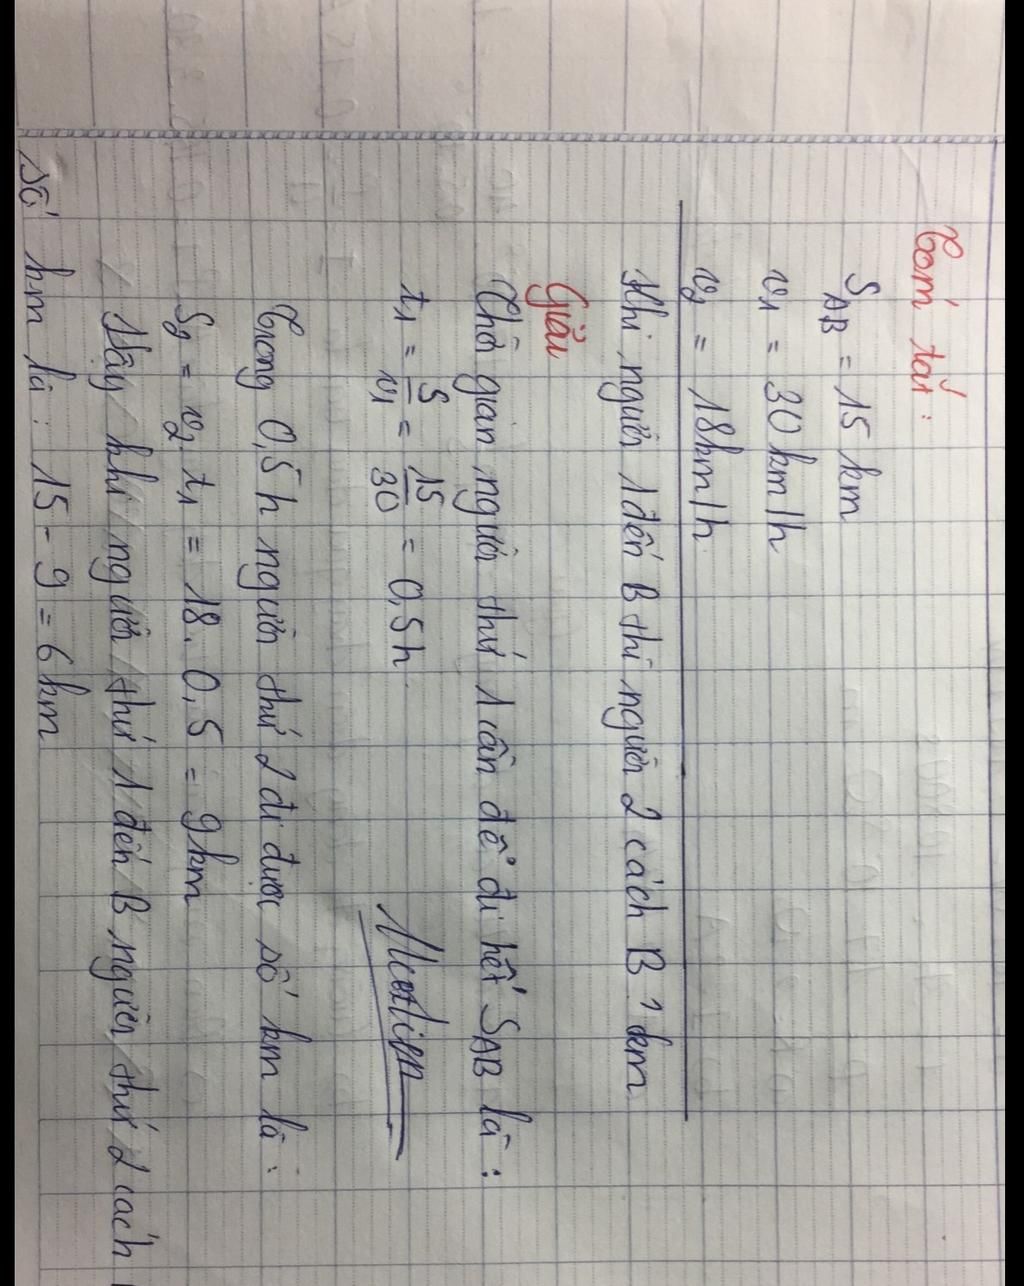 Tóm tắt:
S_AB = 15 km
v₁ = 30 km/h
v₂ = 18km/h.
Khi người 1 đến B thì người 2 cách B ? km
Giải
Thời gian người thứ 1 cần để đi hết S_AB là:
t₁ = S/v₁ = 15/30 = 0,5h
Trong 0,5h người thứ 2 đi được số km là:
S₂ = v₂. t₁ = 18. 0,5 = 9km
Vậy khi người thứ 1 đến B người thứ 2 cách
số km là: 15 - 9 = 6km